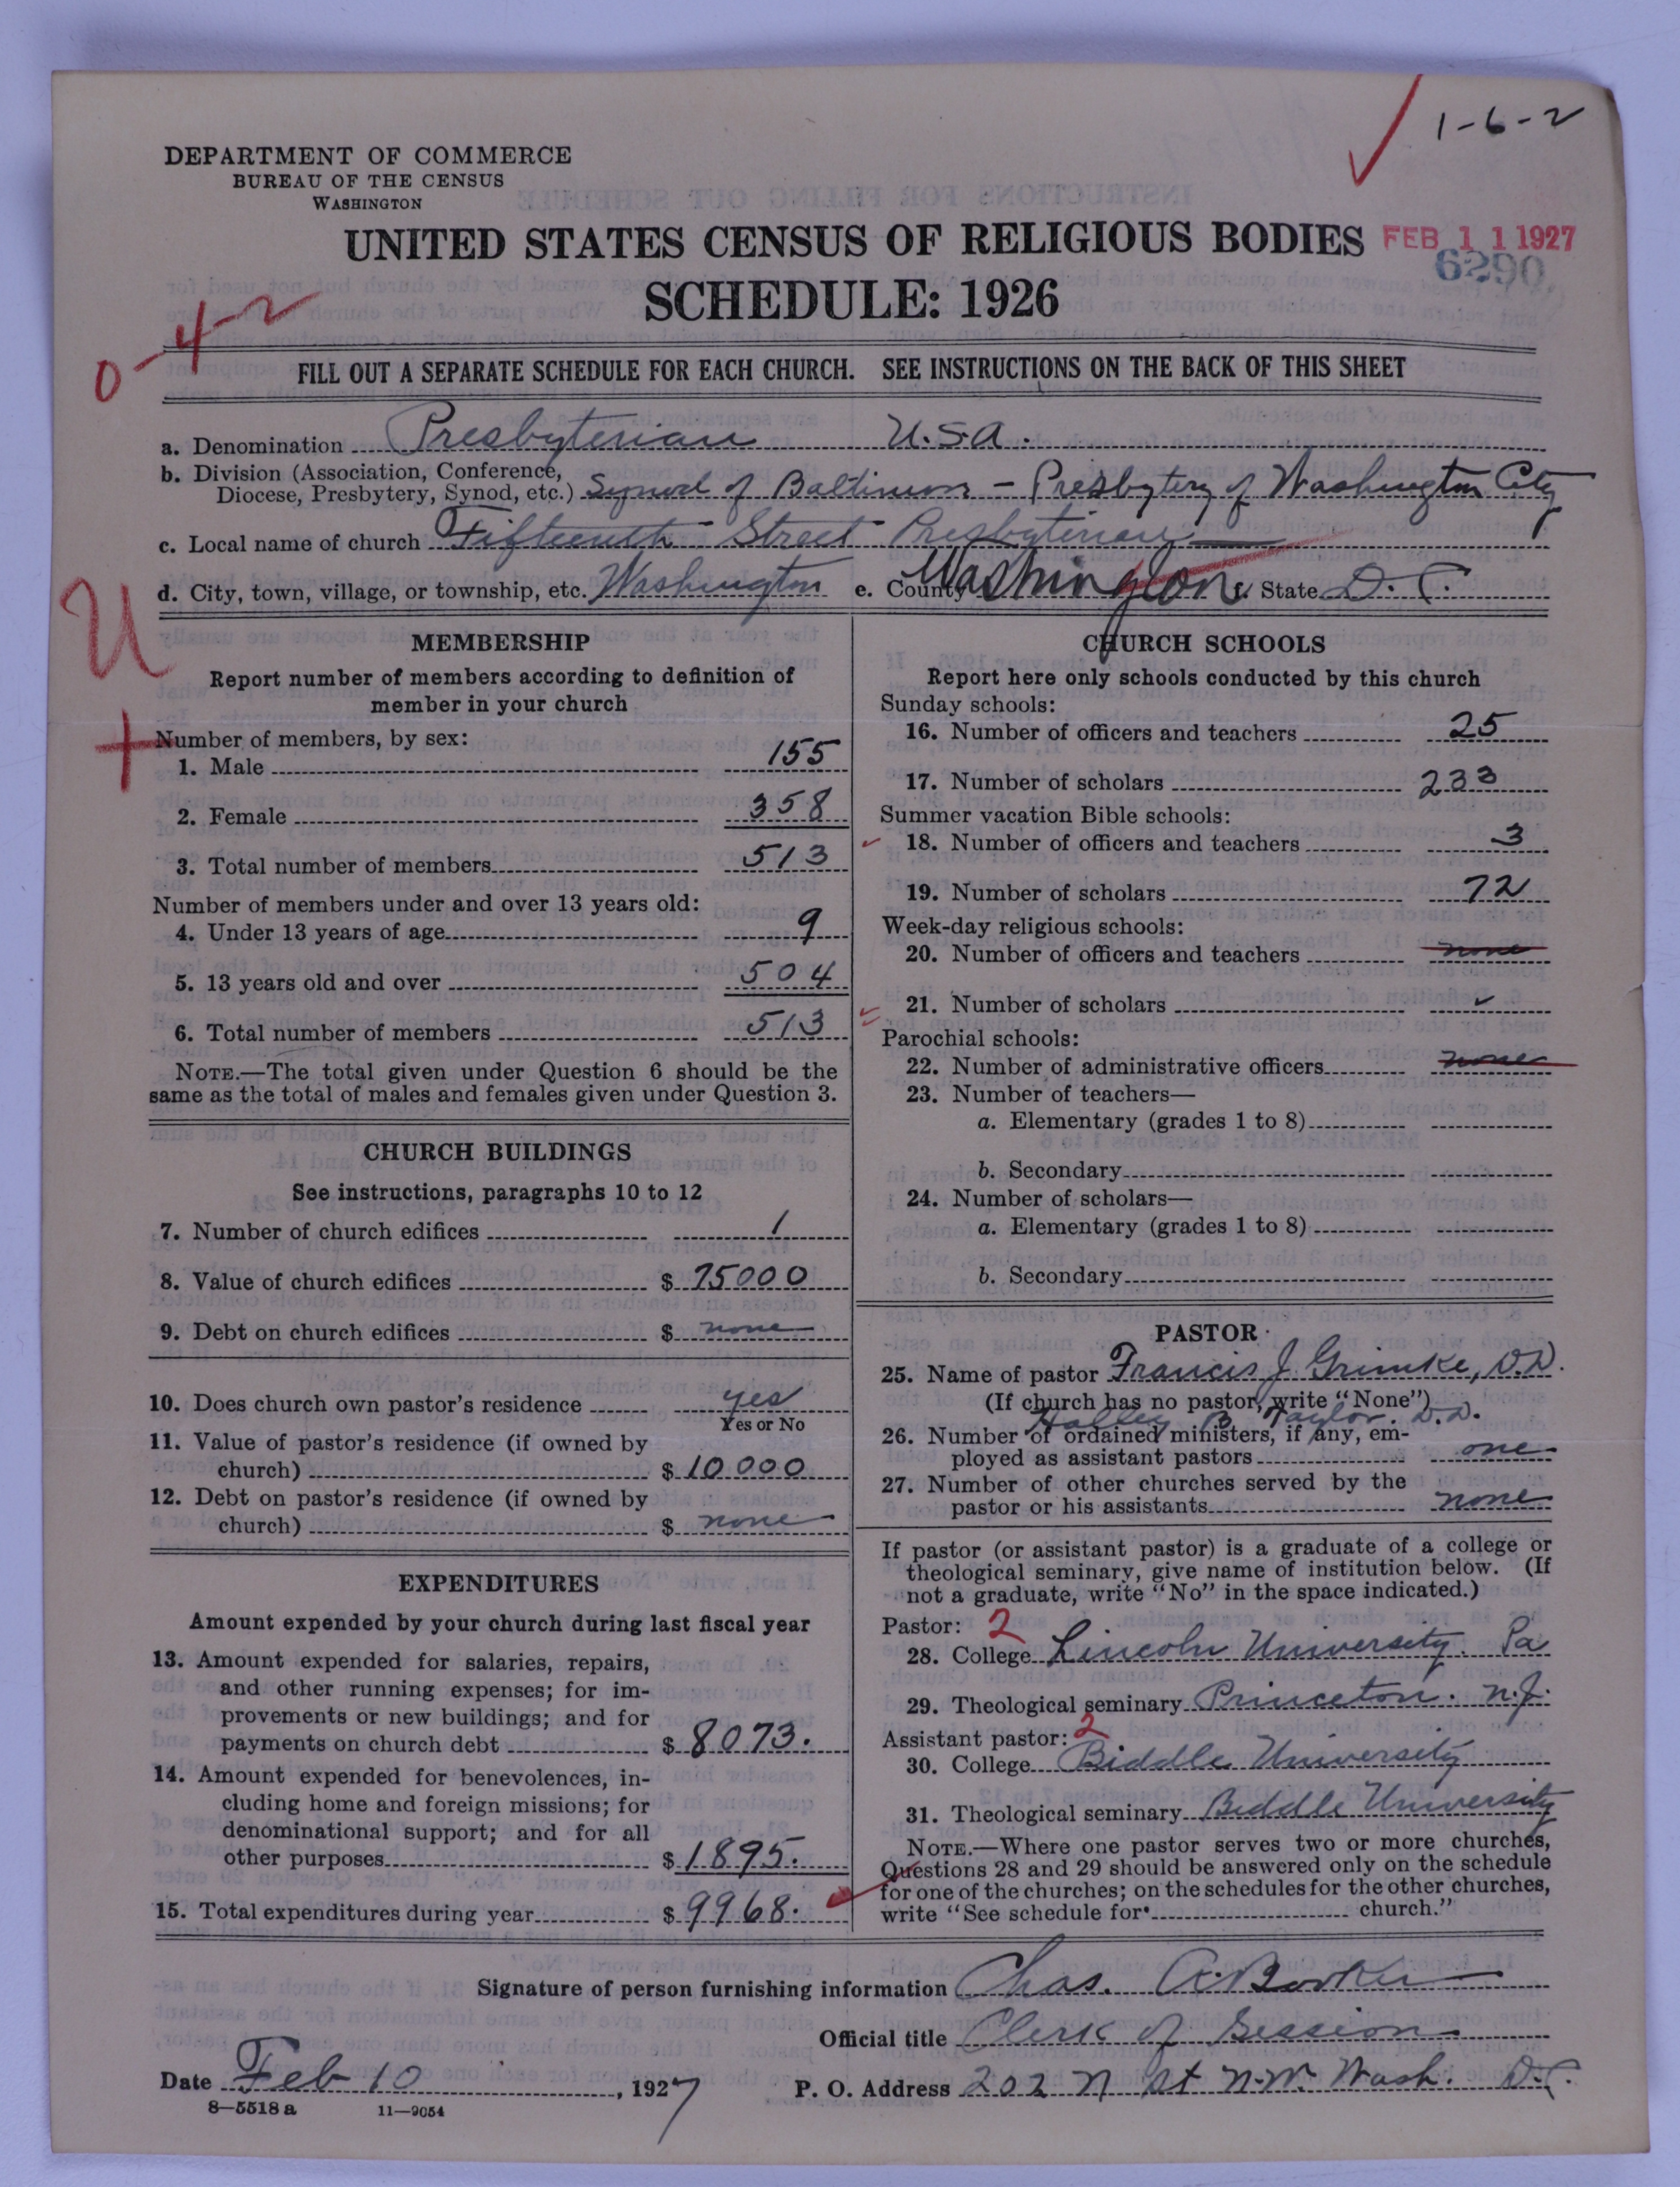 1-6-2
DEPARTMENT OF COMMERCE
BUREAU OF THE CENSUS
WASHINGTON
UNITED STATES CENSUS OF RELIGIOUS BODIES
FEB 11 1927
6290
SCHEDULE: 1926
0-4-2
FILL OUT A SEPARATE SCHEDULE FOR EACH CHURCH. SEE INSTRUCTIONS ON THE BACK OF THIS SHEET
a. Denomination Presbyterian U.S.A.
b. Division (Association, Conference,
Diocese, Presbytery, Synod, etc.) Synod of Baltimore - Presbytery of Washington City
c. Local name of church Fifteenth Street Presbyterian
d. City, town, village, or township, etc. Washington e. County Washington f. State D.C.
U
MEMBERSHIP
Report number of members according to definition of
member in your church
+
Number of members, by sex:
1. Male 155
2. Female 358
3. Total number of members 513
Number of members under and over 13 years old:
4. Under 13 years of age 9
5. 13 years old and over 504
6. Total number of members 513
NOTE.—The total given under Question 6 should be the
same as the total of males and females given under Question 3.
CHURCH BUILDINGS
See instructions, paragraphs 10 to 12
7. Number of church edifices 1
8. Value of church edifices $ 75000
9. Debt on church edifices $ none
10. Does church own pastor's residence yes
Yes or No
11. Value of pastor's residence (if owned by
church) $ 10000
12. Debt on pastor's residence (if owned by
church) $ none
EXPENDITURES
Amount expended by your church during last fiscal year
13. Amount expended for salaries, repairs,
and other running expenses; for im-
provements or new buildings; and for
payments on church debt $ 8073.
14. Amount expended for benevolences, in-
cluding home and foreign missions; for
denominational support; and for all
other purposes $ 1895.
15. Total expenditures during year $ 9968.
CHURCH SCHOOLS
Report here only schools conducted by this church
Sunday schools:
16. Number of officers and teachers 25
17. Number of scholars 233
Summer vacation Bible schools:
18. Number of officers and teachers 3
19. Number of scholars 72
Week-day religious schools:
20. Number of officers and teachers none
21. Number of scholars
Parochial schools:
22. Number of administrative officers none
23. Number of teachers—
a. Elementary (grades 1 to 8)
b. Secondary
24. Number of scholars—
a. Elementary (grades 1 to 8)
b. Secondary
PASTOR
25. Name of pastor Francis J. Grimke, D.D.
(If church has no pastor, write "None")
Halley B. Taylor. D.D.
26. Number of ordained ministers, if any, em-
ployed as assistant pastors one
27. Number of other churches served by the
pastor or his assistants none
If pastor (or assistant pastor) is a graduate of a college or
theological seminary, give name of institution below. (If
not a graduate, write "No" in the space indicated.)
Pastor: 2
28. College Lincoln University. Pa
29. Theological seminary Princeton. N.J.
Assistant pastor: 2
30. College Biddle University
31. Theological seminary Biddle University
NOTE.—Where one pastor serves two or more churches,
Questions 28 and 29 should be answered only on the schedule
for one of the churches; on the schedules for the other churches,
write "See schedule for church."
Signature of person furnishing information Chas.
Official title Clerk of Session
Date Feb 10, 1927
P. O. Address 202 N St N.W. Wash. D.C.
8—5518 a 11—9054